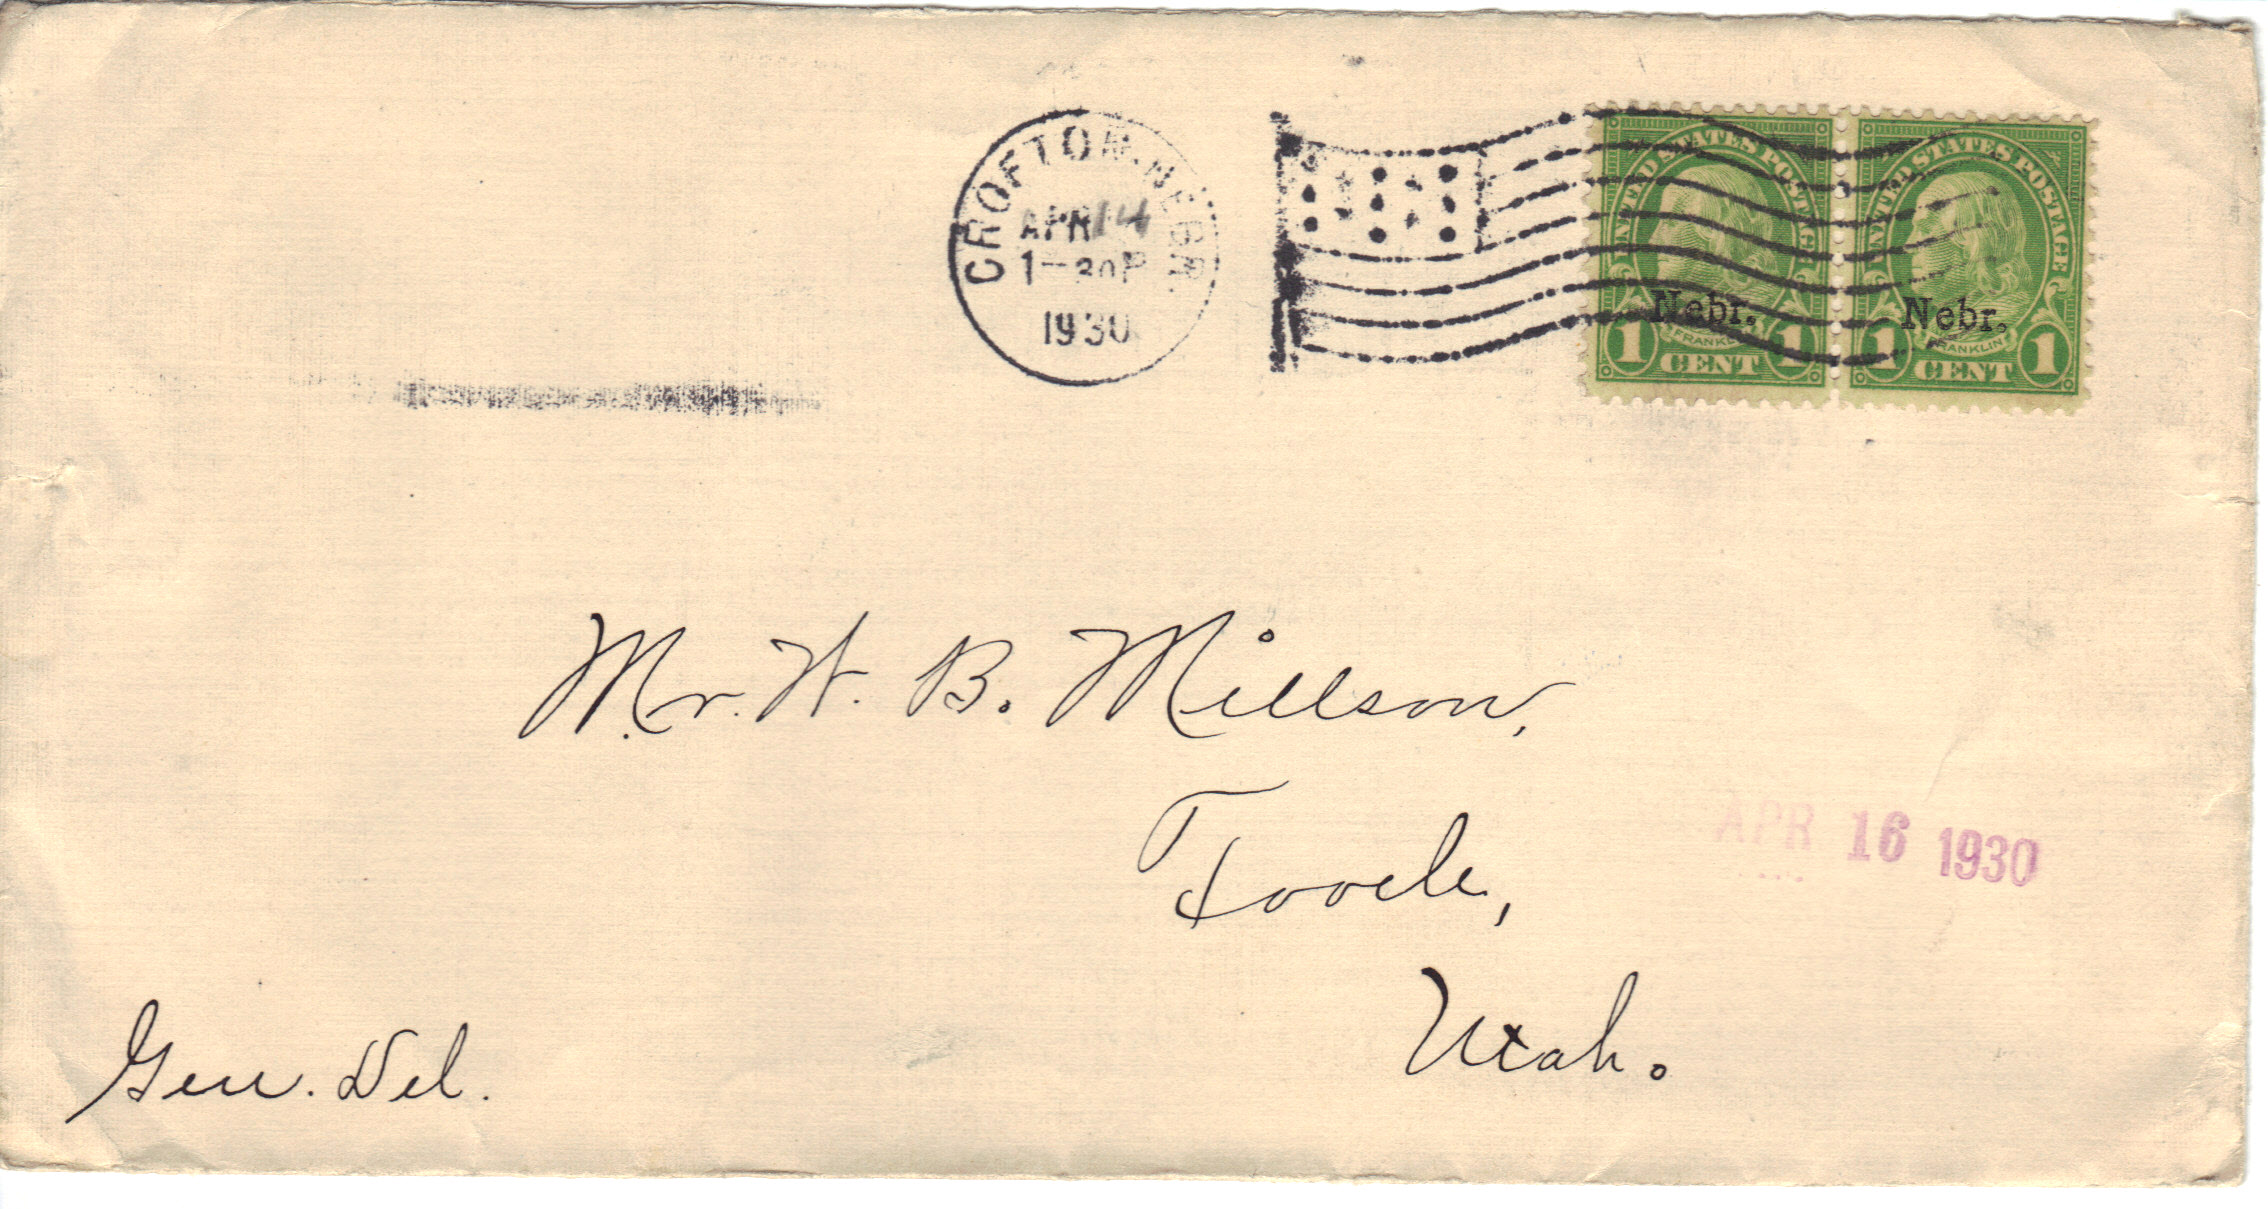 CROFTON. NEBR.
APR 14
1-30P
1930
UNITED STATES POSTAGE
Nebr.
FRANKLIN
1 CENT 1
UNITED STATES POSTAGE
Nebr.
FRANKLIN
1 CENT 1
Mr. W. B. Millson,
Tooele,
APR 16 1930
Utah.
Gen. Del.